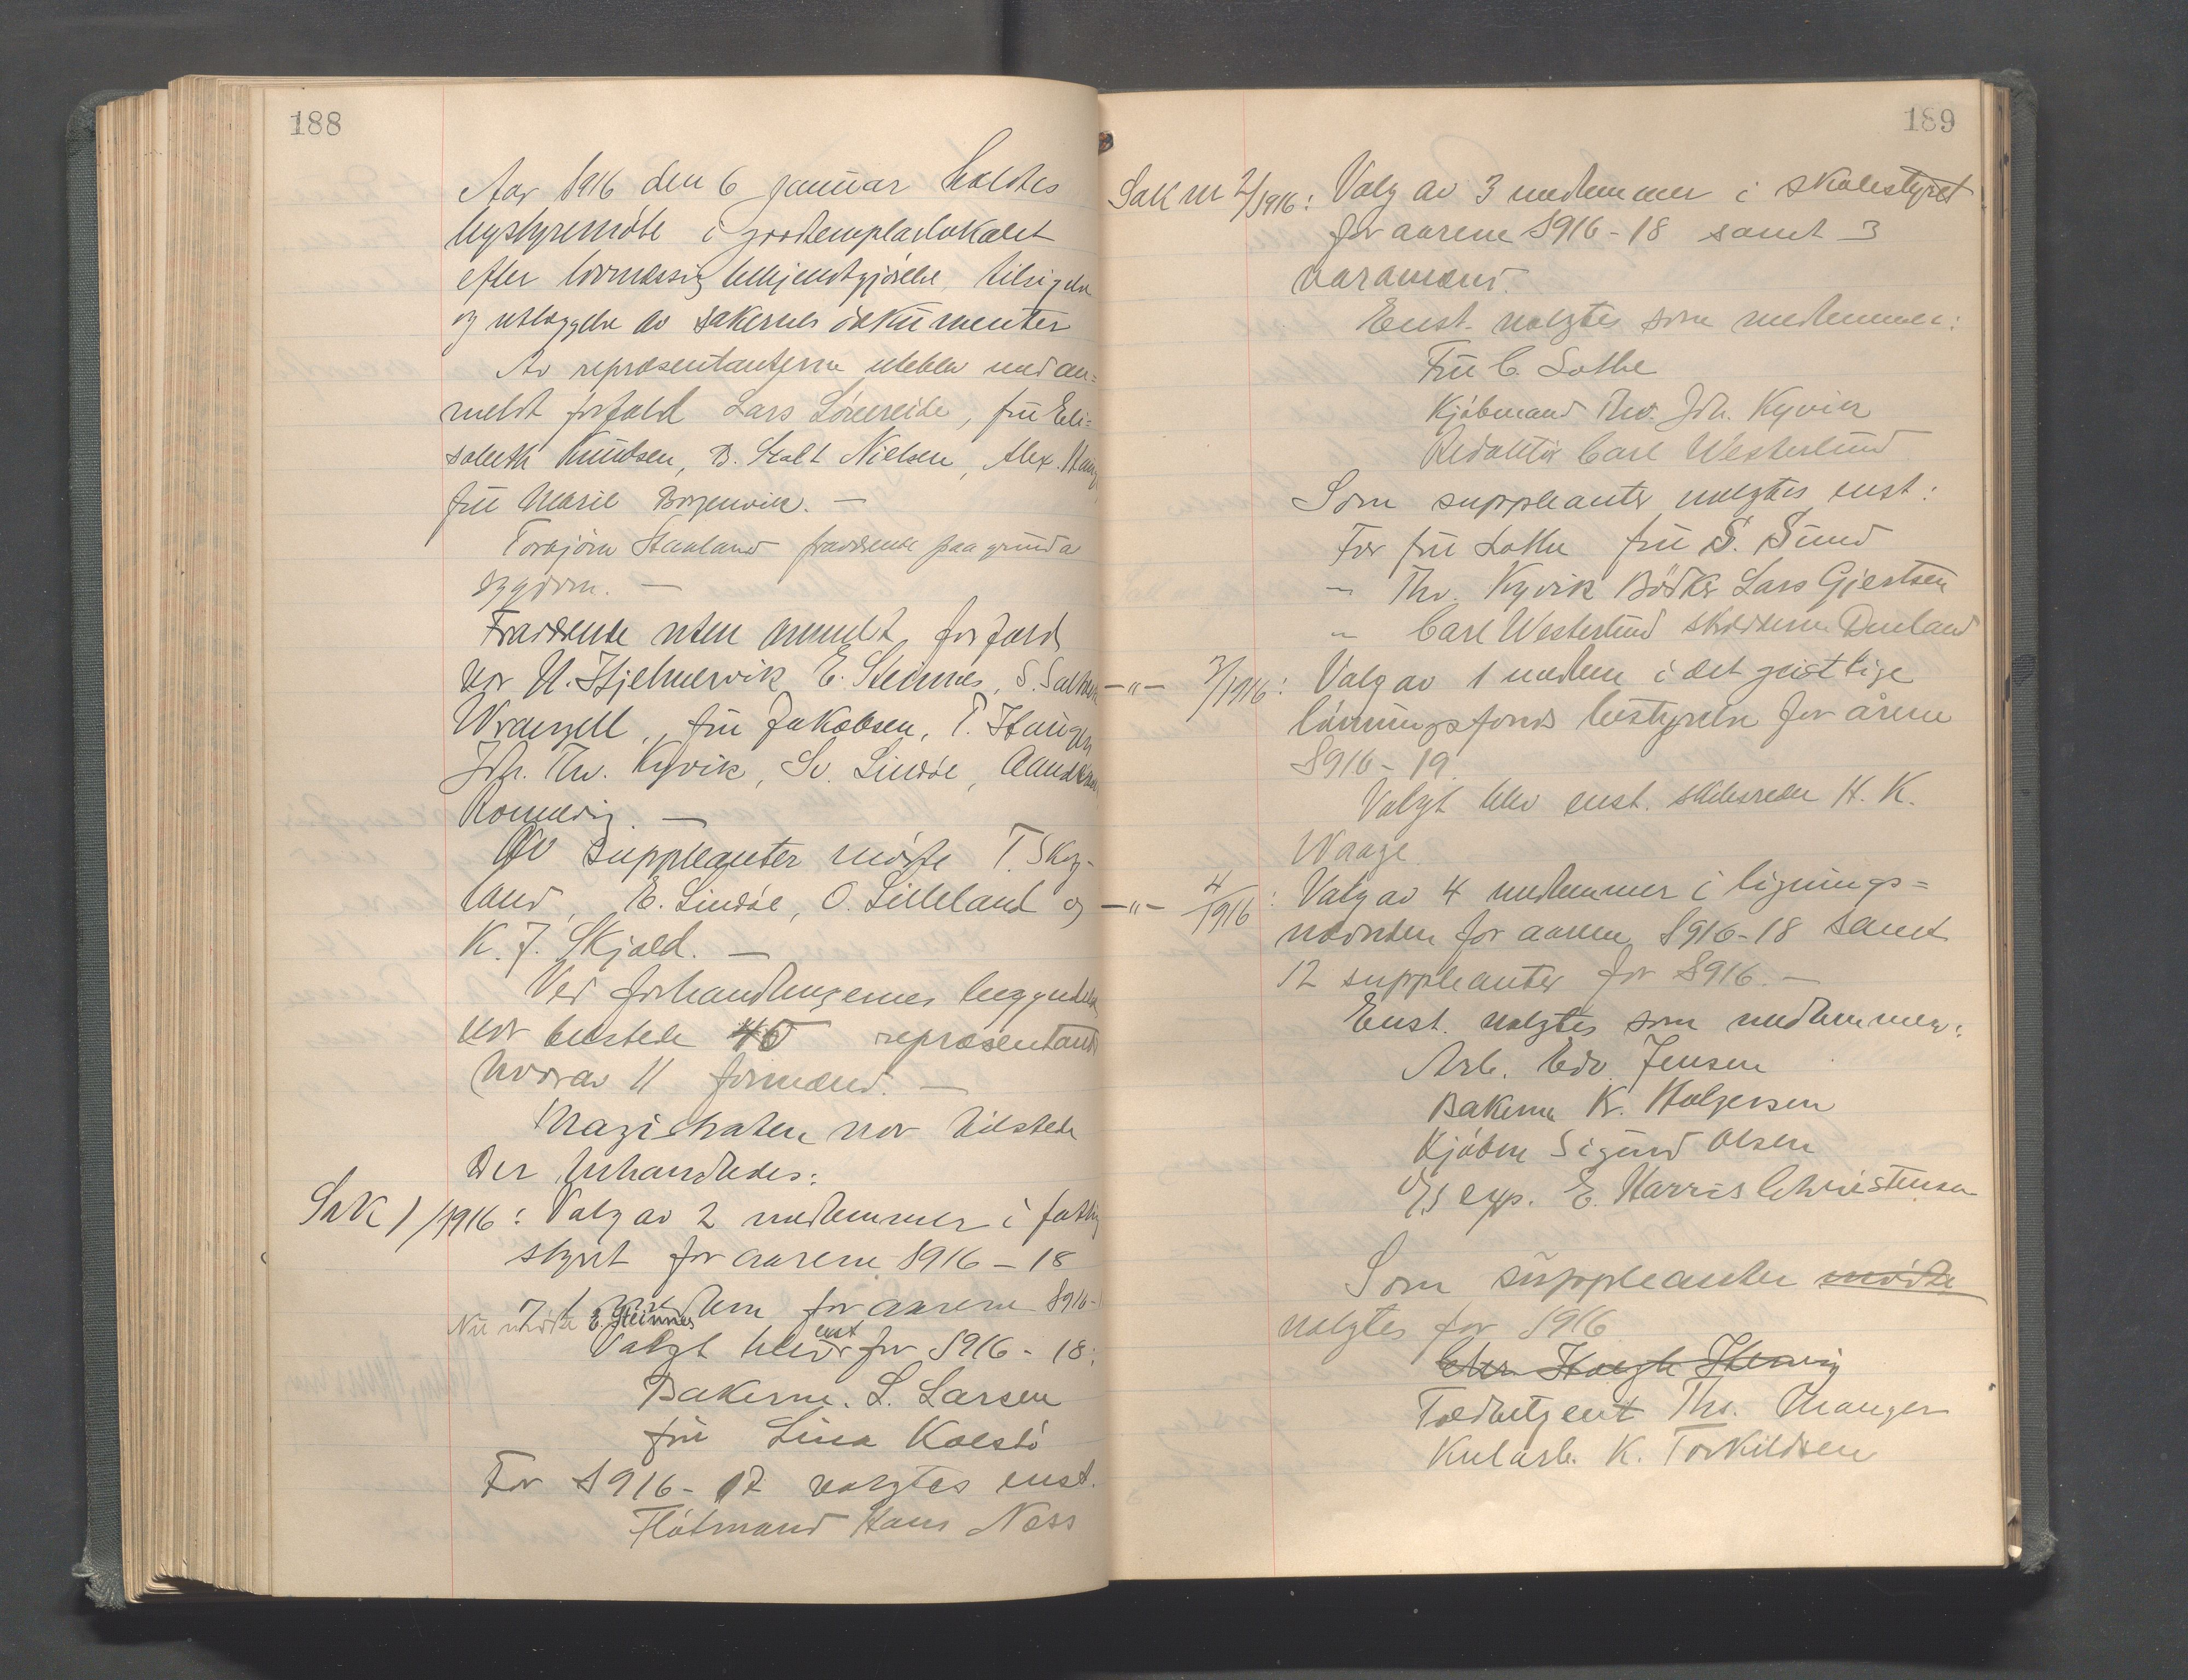 188
Aar 1916 den 6 januar holdtes
bystyremöte i goodtemplarlokalet
efter lovmæssig bekjendtgjörelse, tilsigelse
og utlæggelse av sakernes dokumenter
Av repræsentanterne uteblev med an=
meldt forfald Lars Lönereide, fru Eli=
sabeth Knudsen, B. Stolt Nielsen, Alex. Haug
fru Marie Borgenvik. —
Torbjörn Stakland fraværende paa grund a
sygdom. —
Fraværende uten anmeldt forfald
var H. Hjelmervik E. Steinnes, S. Salthe
Wrangell, fru Jakobsen, T. Haugen
Joh. Thv. Kyvik, Sv. Lindöe,
—
Av suppleanter mötte T. Skog-
land, E. Lindöe, O. Lilleland og
K. J. Skjold. —
Ved forhandlingernes begyndelse
var tilstede 40 repræsentanter
hvorav 11 formænd. —
Magistraten var tilstede
Der behandledes:
Sak 1/1916: Valg av 2 medlemmer i fattig
styret for aarene 1916 – 18
1 medlem for aarene 1916-
Nu mötte E. Steinnes
Valgt blev enst for 1916 - 18:
Bakerm. L. Larsen
fru Lina Kolstö
For 1916 - 17 valgtes enst.
Flötmand Hans Næss
189
Sak nr 2/1916: Valg av 3 medlemmer i skolestyret
for aarene 1916 - 18 samt 3
varamænd.
Enst. valgtes som medlemmer:
Fru C. Lothe
Kjöbmand Thv. Joh. Kyvik
Redaktör Carl Westerlund
Som suppleanter valgtes enst:
For fru Lothe fru S. Sund
" Thv. Kyvik Bödker Lars Gjertsen
" Carl Westerlund Denland
—"— 3/1916: Valg av 1 medlem i det geistlige
lönningsfonds bestyrelse for årene
1916 - 19.
Valgt blev enst. skibsreder H. K.
Waage.
—"— 4/1916: Valg av 4 medlemmer i lignings=
nævnden for aarene 1916-18 samt
12 suppleanter for 1916. —
Enst. valgtes som medlemmer:
Arb. Edv. Jensen
Bakerm K. Holgersen
Kjöbm Sigurd Olsen
D/S exp. E. Harris Christensen
Som suppleanter mötte
valgtes for 1916
Toldbetjent Ths. Manger
Kularb. K. Torkildsen